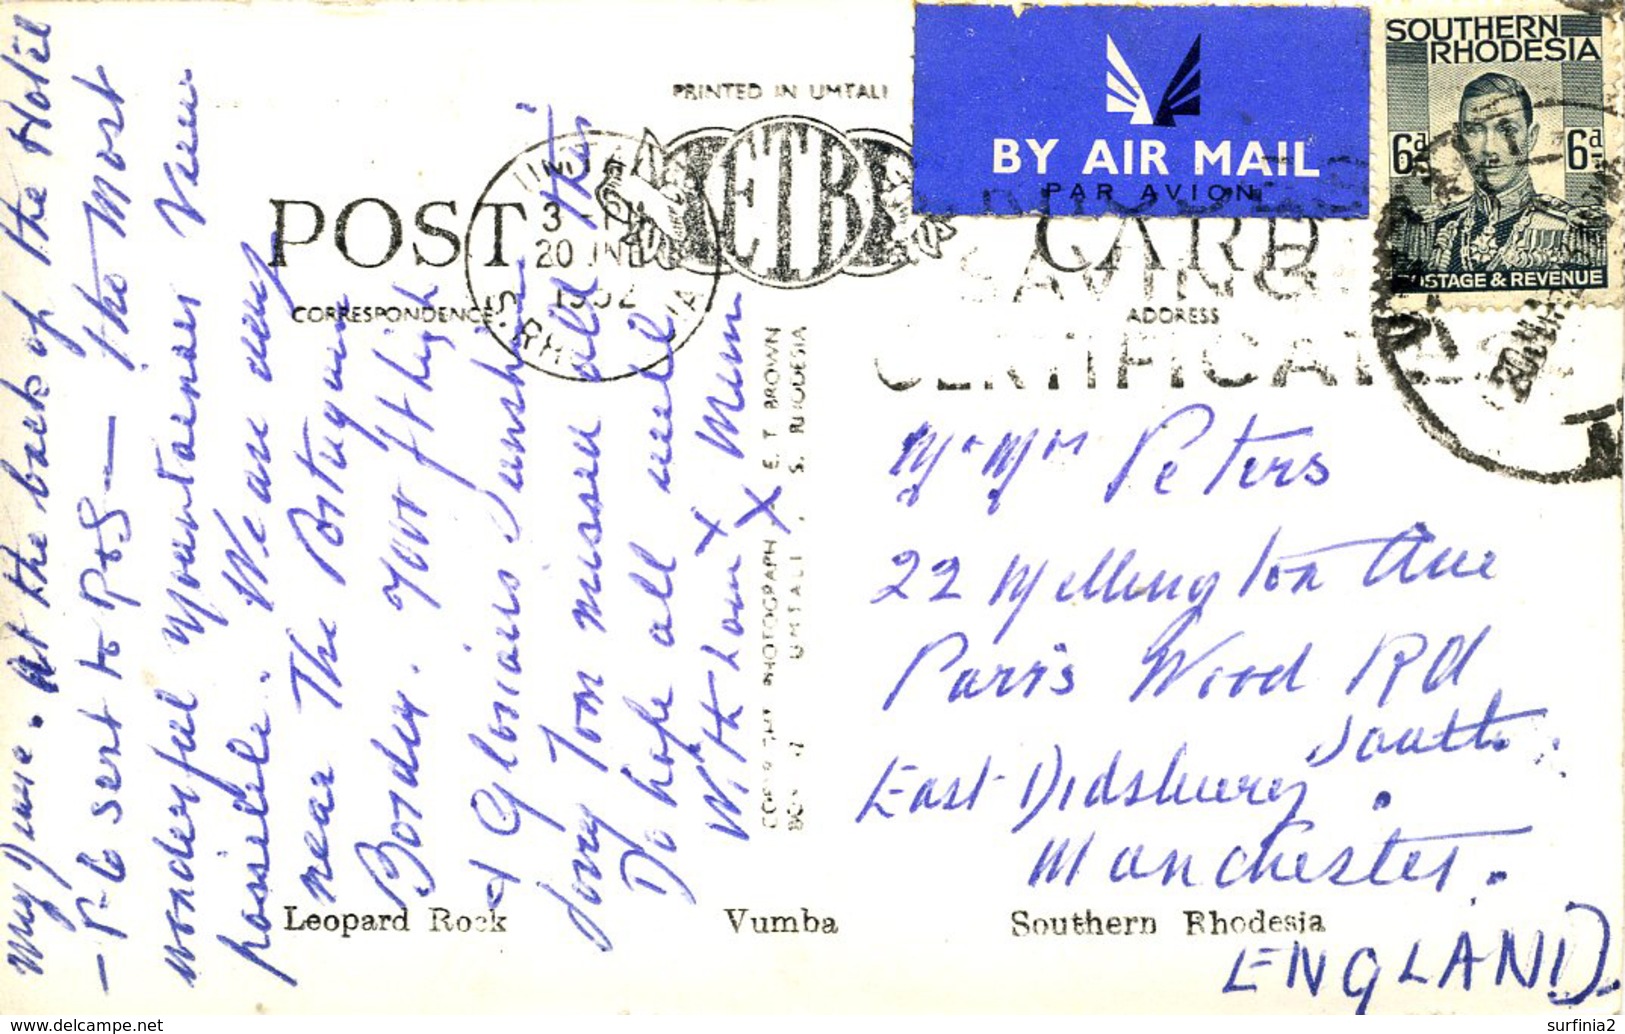 PRINTED IN UMTALI
POST CARD
CORRESPONDENCE
ADDRESS
BY AIR MAIL
PAR AVION
SOUTHERN
RHODESIA
6d 6d
POSTAGE & REVENUE
20 JNE
1952
SAVINGS
CERTIFICATES
My Dears. At the back of the Hotel
- P-C sent to P & S - the most
wonderful Mountainous View
possible. We are very
near The Portugese
Border. 7000 ft high
& Glorious Sunshine
sorry Tom missed all this
Do hope all well
With Love x Mum
x
PHOTOGRAPH E. T. BROWN
UMTALI, S. RHODESIA
Mr Mrs Peters
22 Mellington Ave
Parrs Wood Rd
South
East Didsbury.
Manchester.
ENGLAND.
Leopard Rock Vumba Southern Rhodesia
http://www.delcampe.net
surfinia2